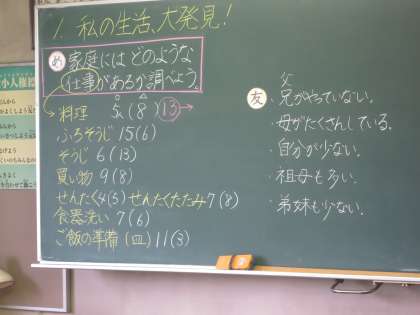 1. 私の生活、大発見!
め 家庭には どのような
仕事があるか調べよう。
料理 5人(8)13
ふろそうじ 15(6)
そうじ 6(13)
買い物 9(8)
せんたく4(5) せんたくたたみ7(8)
食器洗い 7(6)
ご飯の準備(四)11(3)
友
父
兄がやっていない。
・母がたくさんしている。
・自分が少ない。
・祖母も多い。
・弟妹も少ない。
小人権標